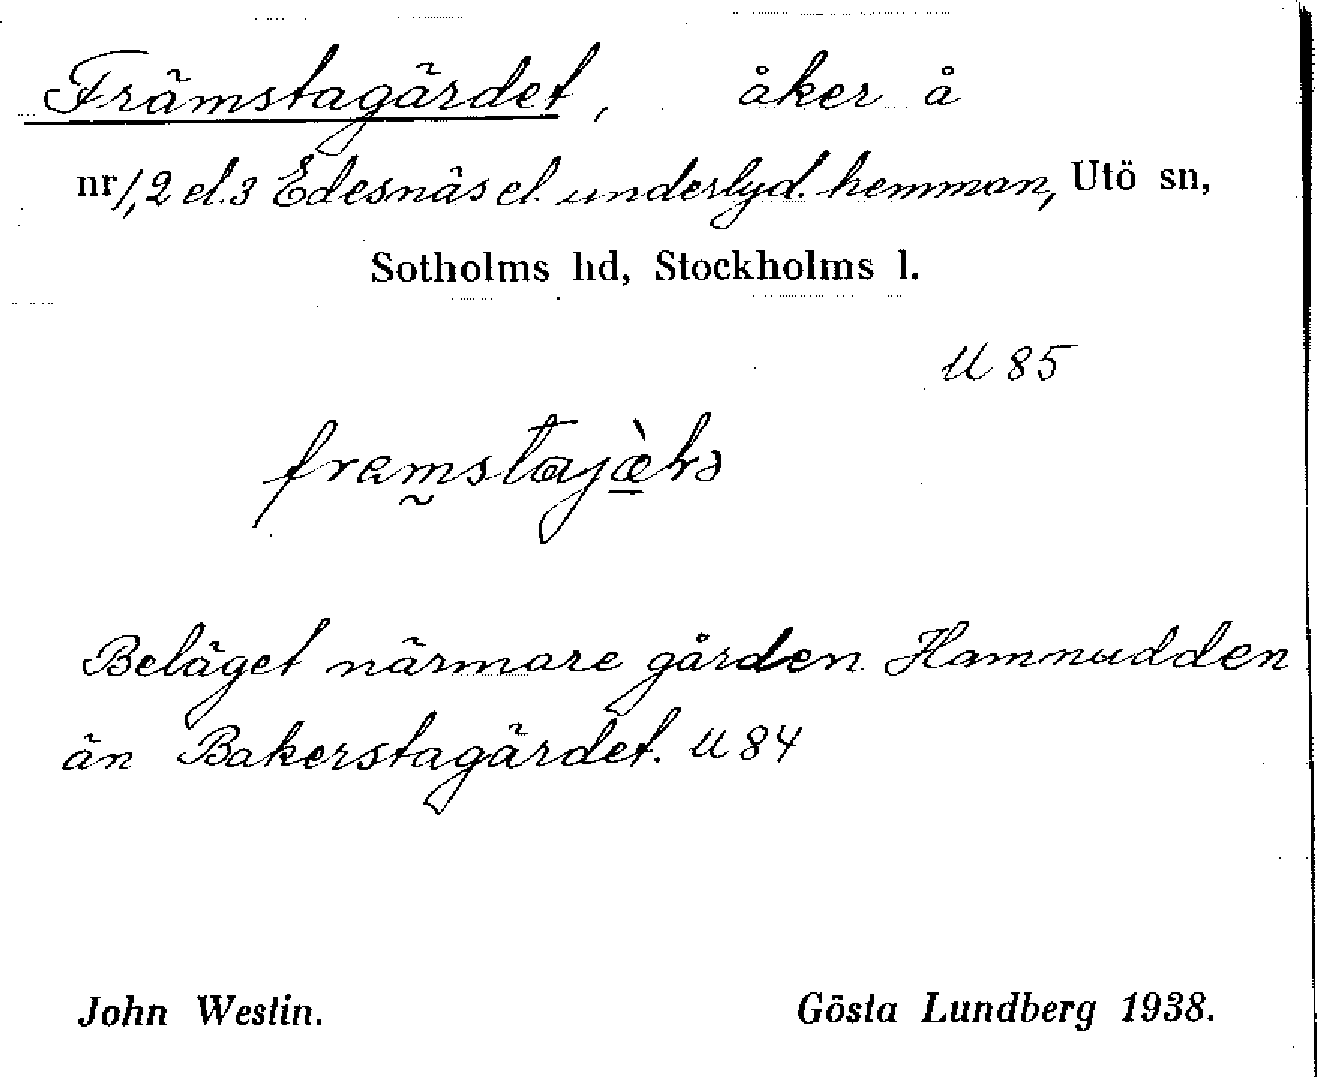 Främstagärdet, åker å
nr 1, 2 el. 3 Edesnäs el. underlyd. hemman, Utö sn,
Sotholms hd, Stockholms l.
U 85
Beläget närmare gården Hamnudden
än Bakerstagärdet. U 84
John Westin. Gösta Lundberg 1938.